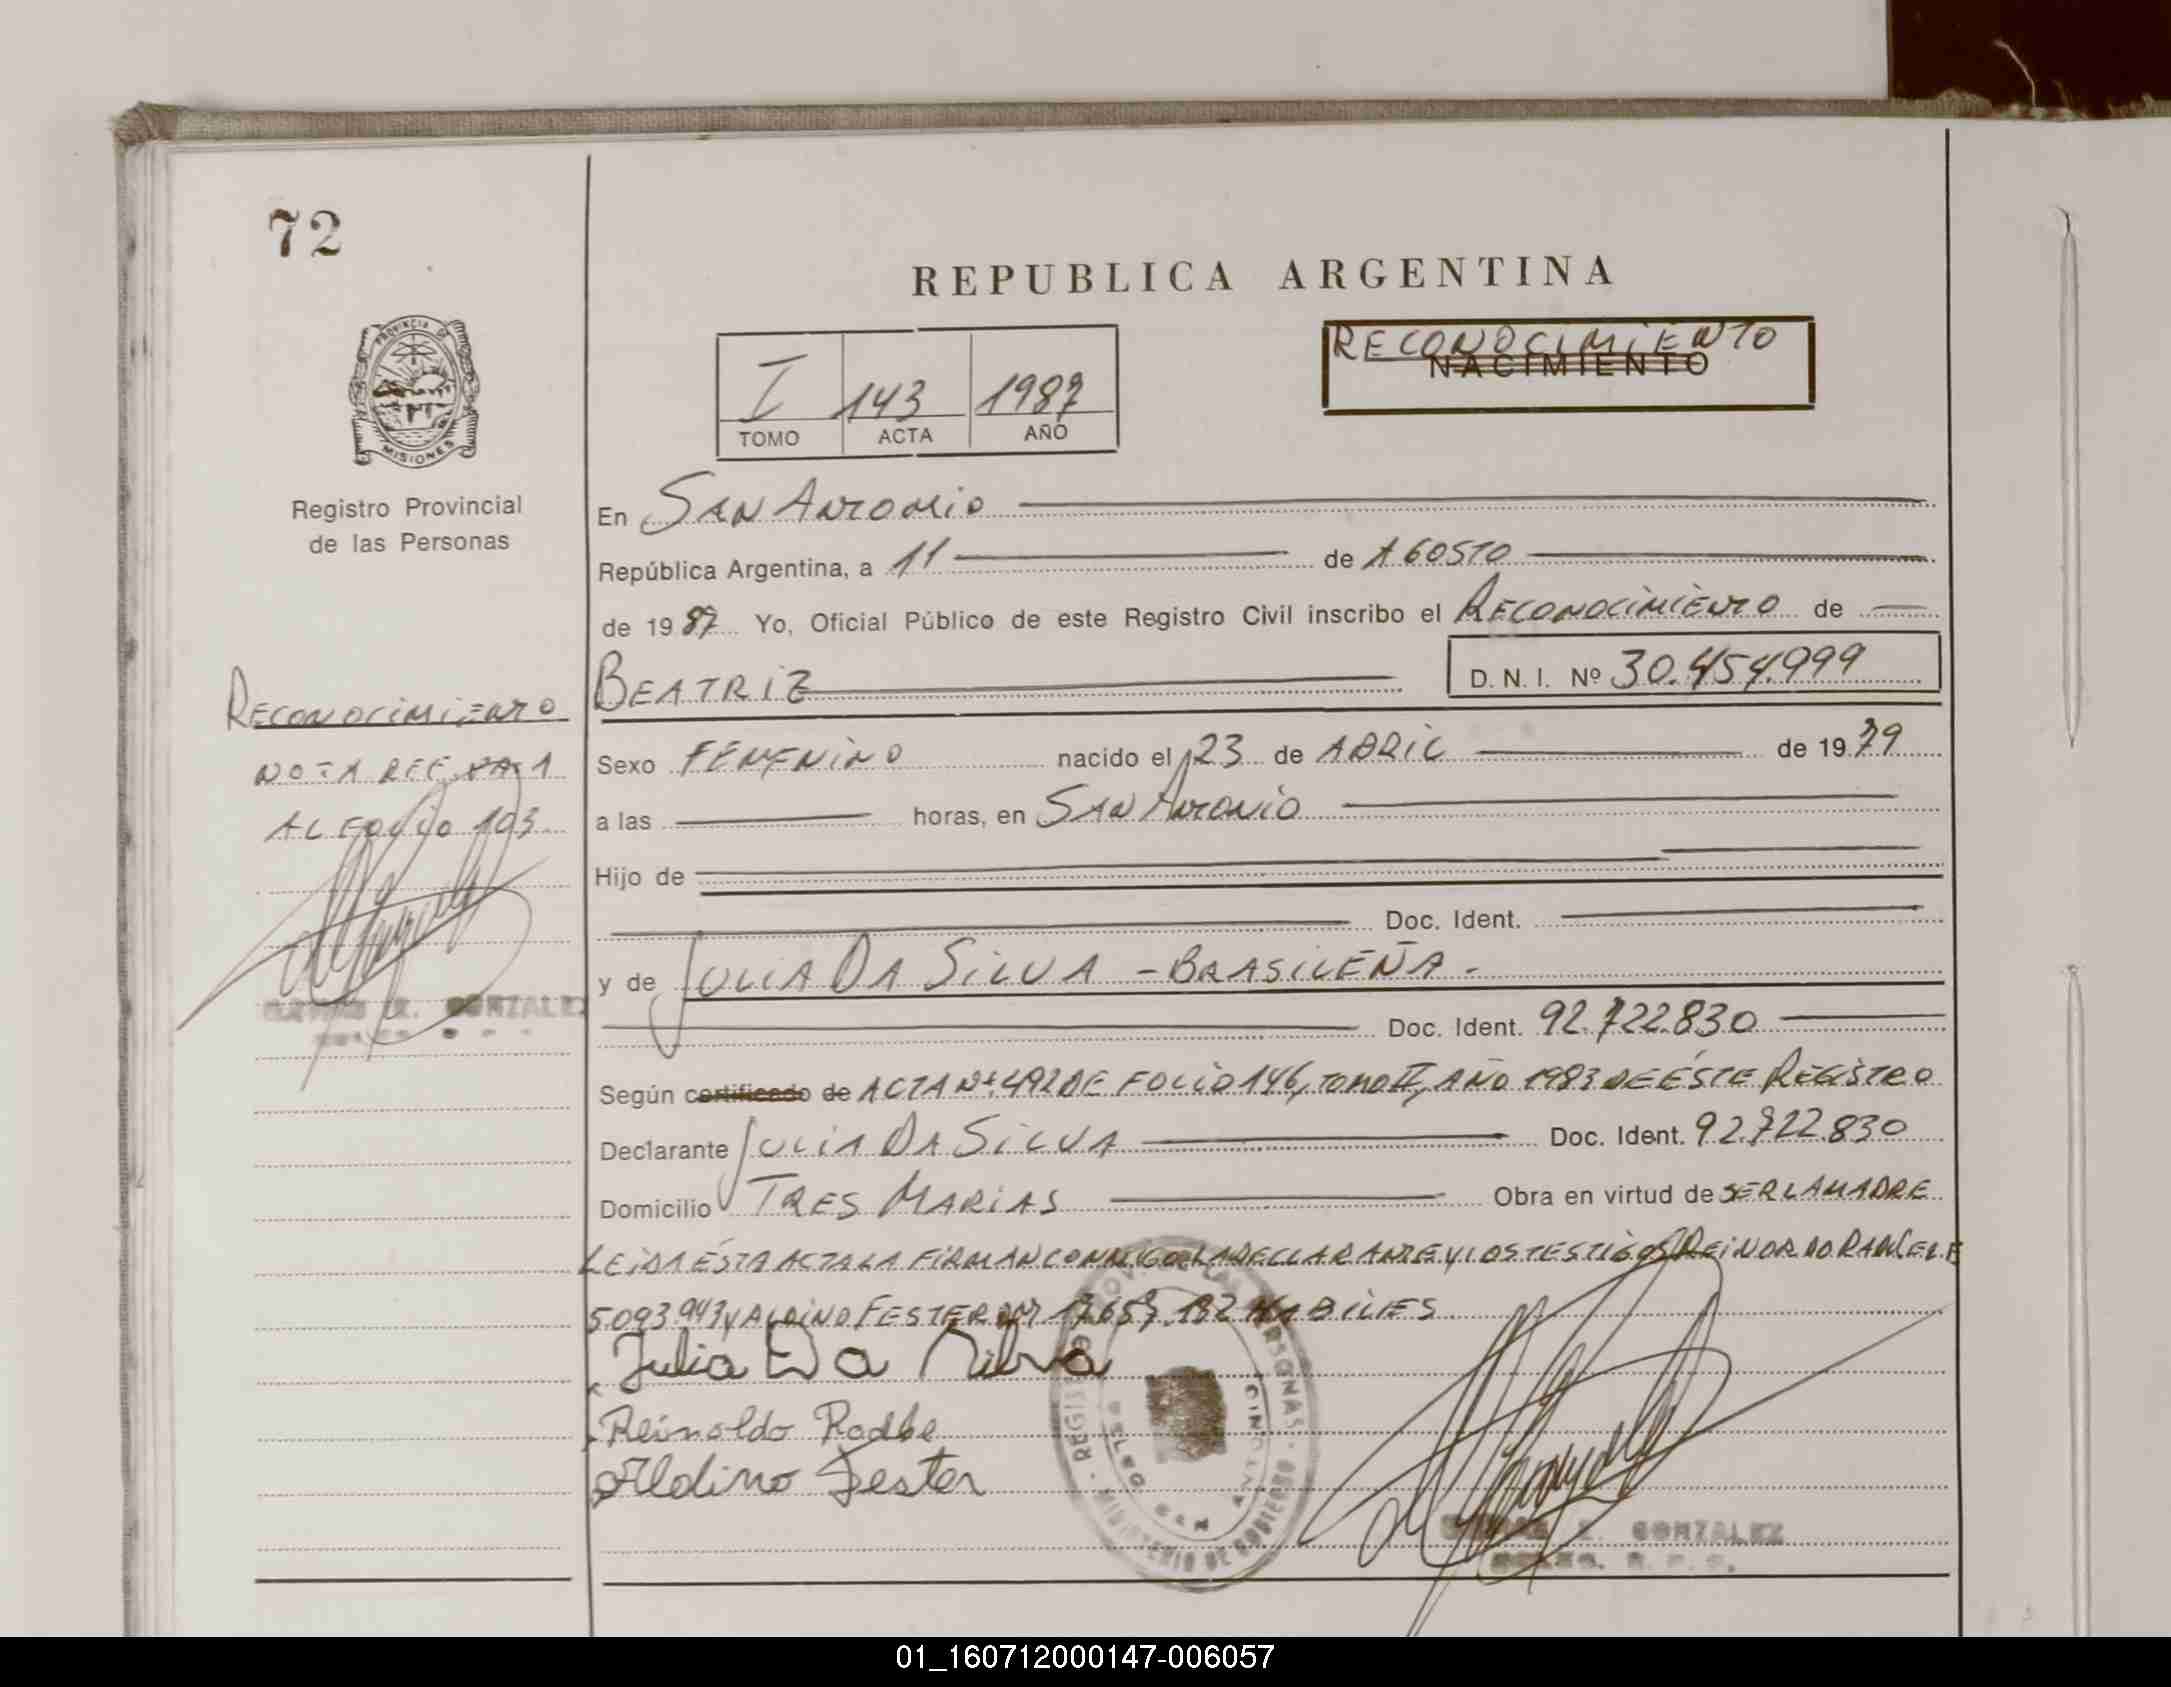 72
REPUBLICA ARGENTINA
RECONOCIMIENTO
NACIMIENTO
I 143 1987
TOMO ACTA AÑO
PROVINCIA DE
MISIONES
Registro Provincial
de las Personas
En SAN ANTONIO
República Argentina, a 11 de AGOSTO
de 1987 Yo, Oficial Público de este Registro Civil inscribo el RECONOCIMIENTO de
BEATRIZ D. N. I. Nº 30.454.999
RECONOCIMIENTO
NOTA REF. 1
AL FOLIO 103
GONZALEZ
Sexo FEMENINO nacido el 23 de ABRIL de 1979
a las horas, en SAN ANTONIO
Hijo de
Doc. Ident.
y de JULIA DA SILVA - BRASILEÑA -
Doc. Ident. 92.722.830
Según certificado de ACTA Nº 492 DE FOLIO 146, TOMO II, AÑO 1983 DE ÉSTE REGISTRO
Declarante JULIA DA SILVA Doc. Ident. 92.722.830
Domicilio TRES MARIAS Obra en virtud de SER LA MADRE
LEIDA ÉSTA ACTA LA FIRMAN CONMIGO LA DECLARANTE Y LOS TESTIGOS
5.093.943 Y ALDINO FESTER DNI 17.657.132 HABILIES
Julia Da Silva
Reinoldo Radke
Aldino Fester
REGISTRO PROV. DE LAS PERSONAS
DELEG. SAN ANTONIO
MINISTERIO DE GOBIERNO
GONZALEZ
01_160712000147-006057